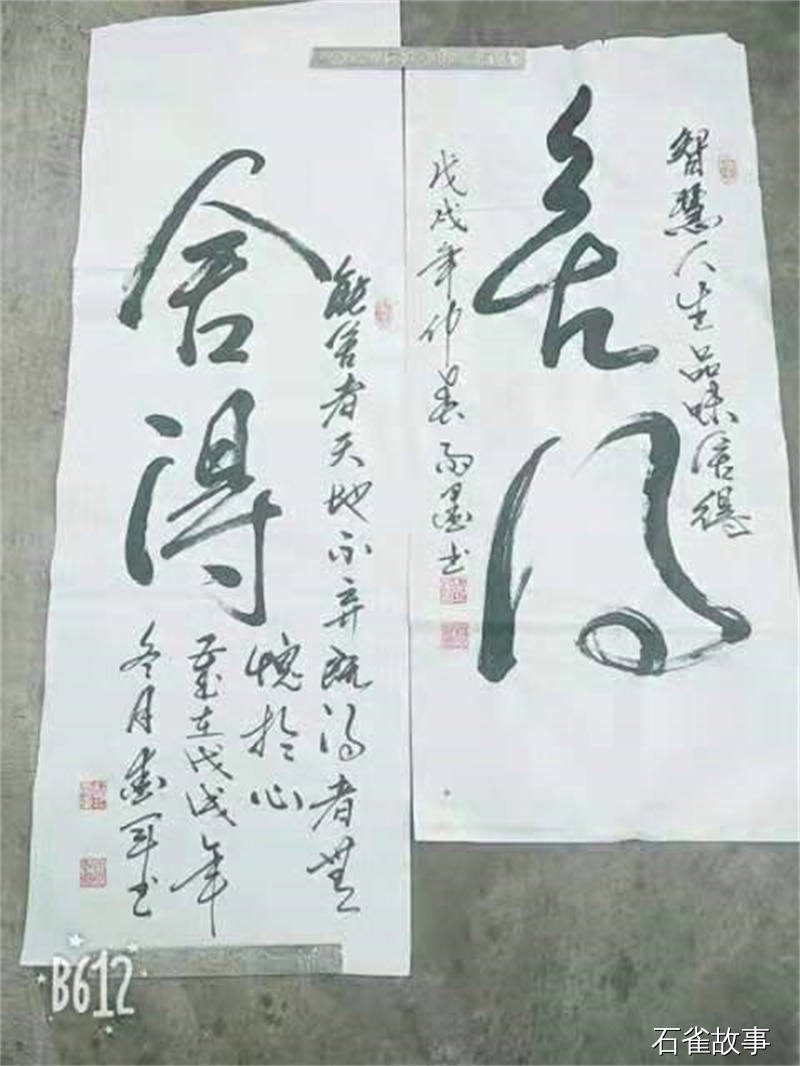 智慧人生品味舍得
舍得
戊戌年仲春墨书
能舍者天地不弃既得者無
愧於心
岁在戊戌年
冬月军书
舍得
B612
石雀故事